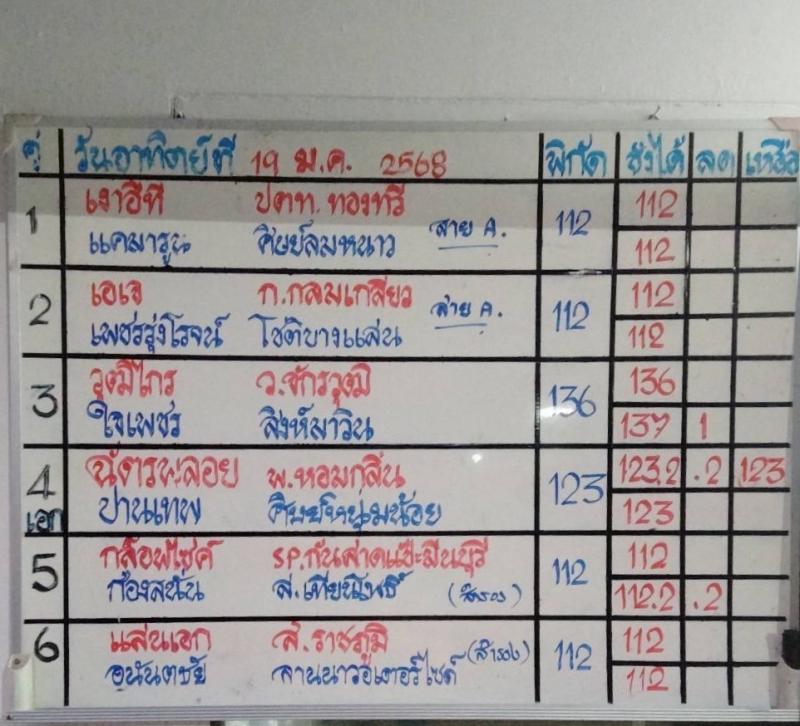 คู่ วันอาทิตย์ที่ 19 ม.ค. 2568 พิกัด ชั่งได้ ลด เหลือ
1 เงาอีที ปตท. ทองทวี 112 112
แคมารูน ศิษย์ลมหนาว สาย A. 112
2 เอเจ ก.กลมเกลียว 112 112
เพชรรุ่งโรจน์ โชติบางแสน สาย A. 112
3 วุฒิไกร ว.จักรวุฒิ 136 136
ใจเพชร สิงห์มาวิน 137 1
4 ฉัตรพลอย พ.หอมกลิ่น 123 123.2 .2 123
เอก ปานเทพ ศิษย์หนุ่มน้อย 123
5 SP.กันสาดแป๊ะมีนบุรี 112 112
ก้องสนั่น ส.เทียนโพธิ์ (สำรอง) 112.2 .2
6 แสนเอก ส.ราชภูมิ (สำรอง) 112 112
อนันตชัย ลานนาวอเตอร์ไซด์ 112